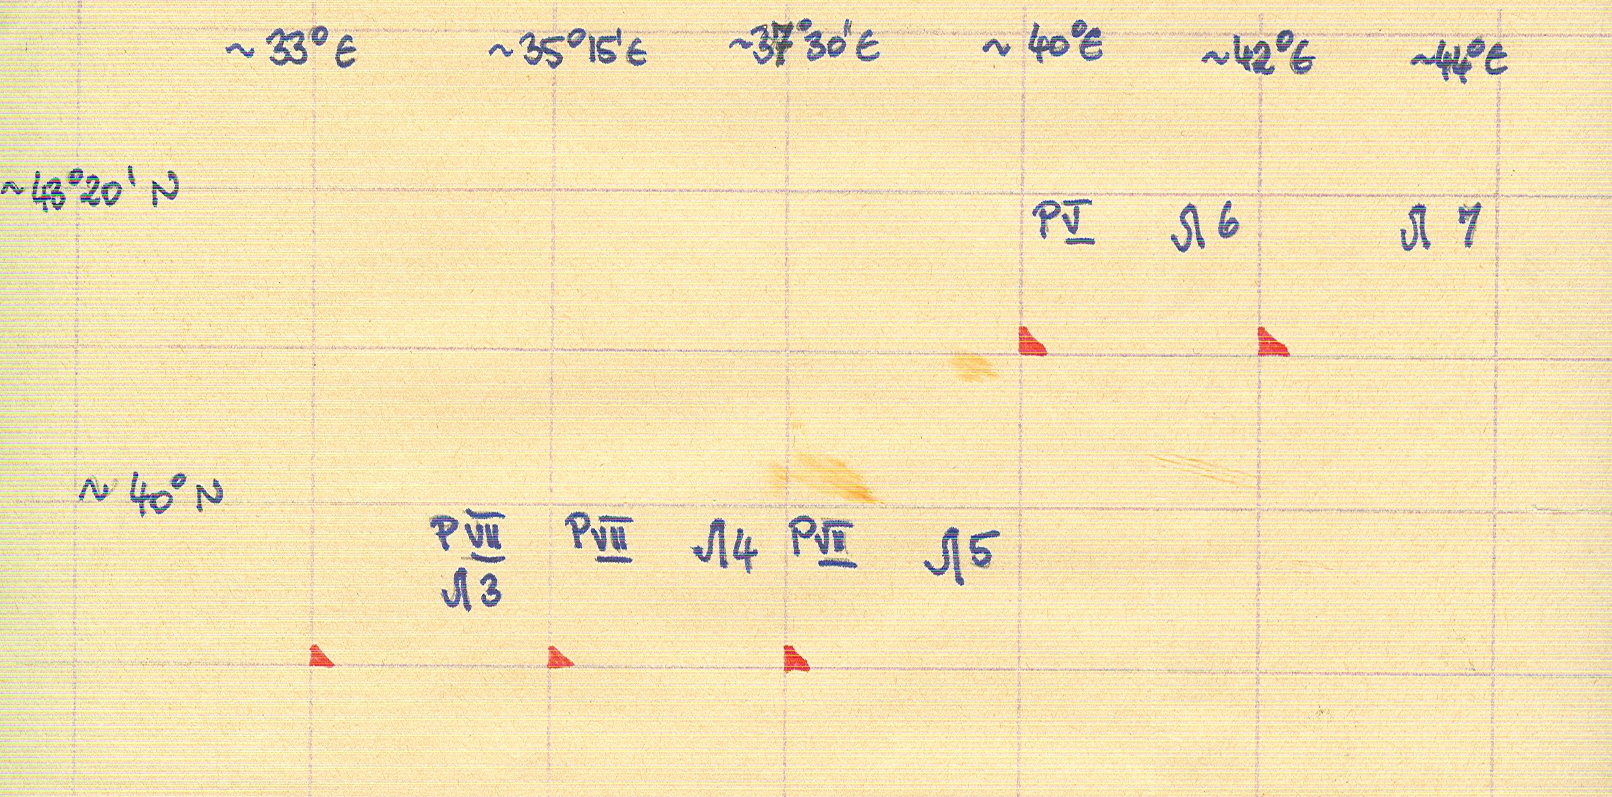 ~33°E ~35°15'E ~37°30'E ~40°E ~42°E ~44°E
~43°20' N
PV Л6 Л 7
~ 40° N
PVII PVII Л4 PVII Л5
Л3